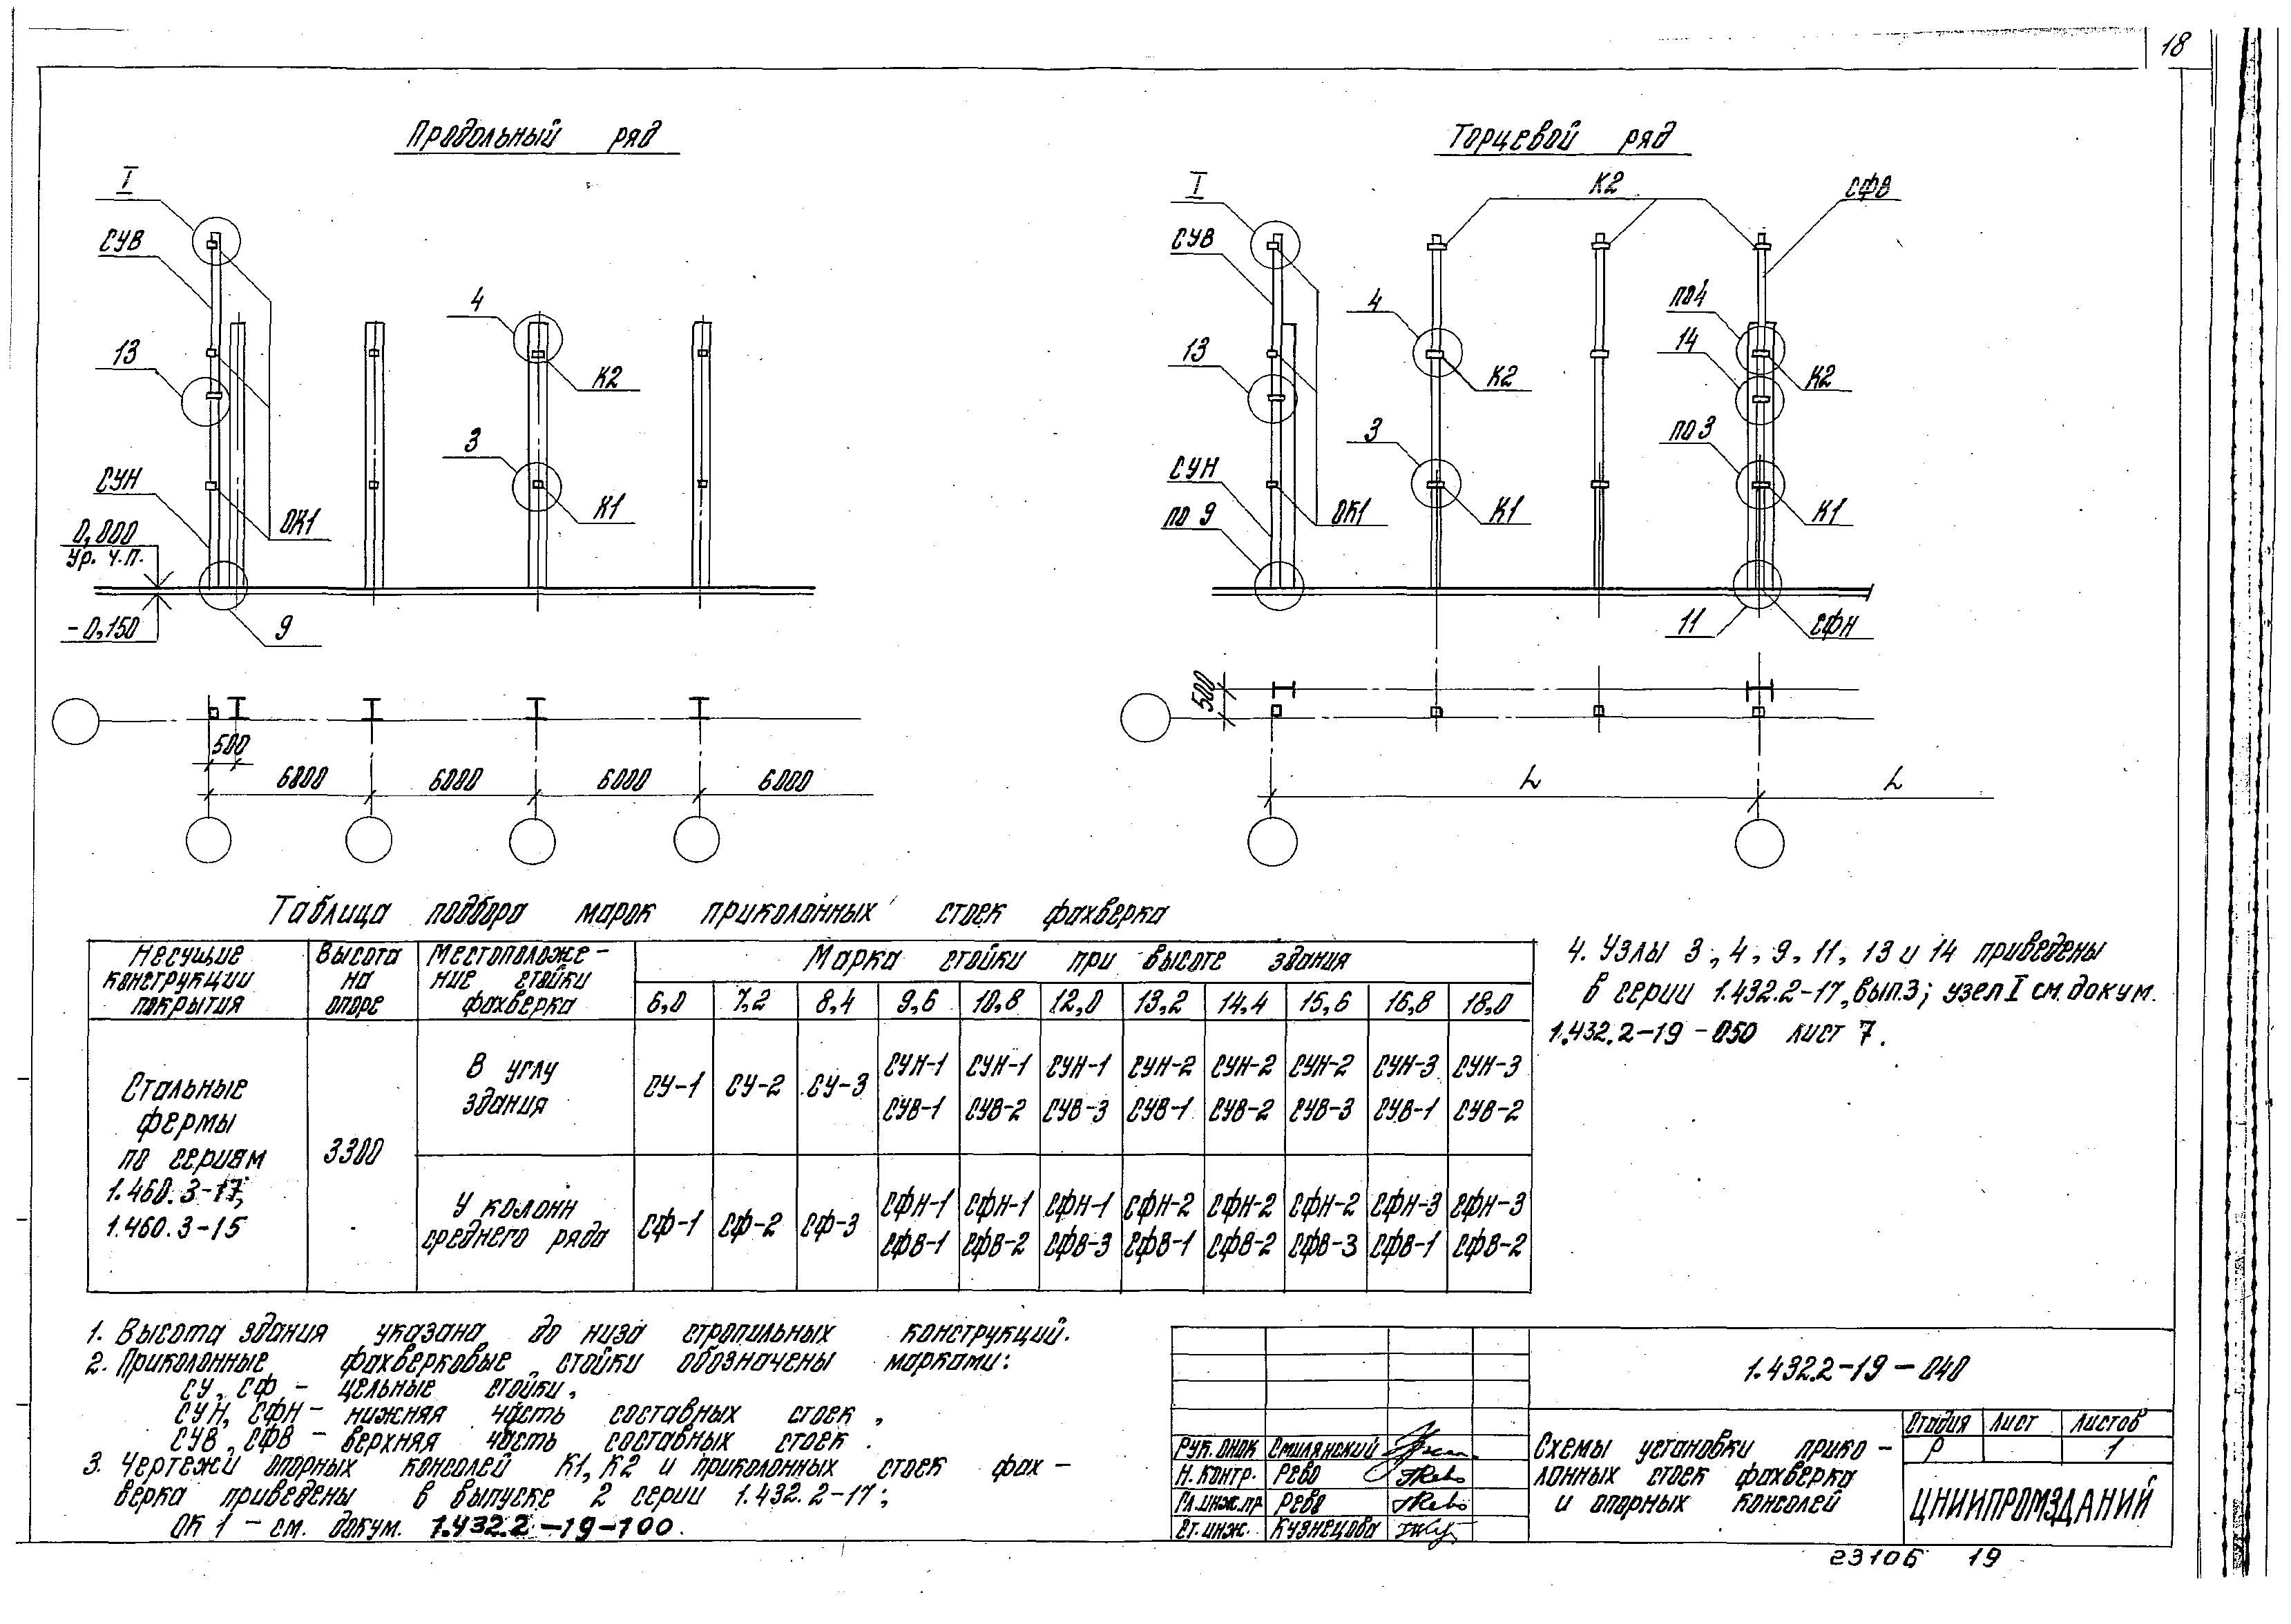 18
Продольный ряд
I
СУВ
13
СУН
0,000
Ур. ч.п.
-0,150
9
ОК1
4
К2
3
К1
500
6000 6000 6000 6000
Торцевой ряд
I
СУВ
13
СУН
по 9
ОК1
К2
СФВ
4
К2
3
К1
по 4
14
К2
по 3
К1
11
СФН
500
L L
Таблица подбора марок приколонных стоек фахверка
Несущие конструкции покрытия
Высота на опоре
Местоположе-
ние стойки
фахверка
Марка стойки при высоте здания
6,0 7,2 8,4 9,6 10,8 12,0 13,2 14,4 15,6 16,8 18,0
Стальные
фермы
по сериям
1.460.3-17;
1.460.3-15
3300
В углу
здания
СУ-1 СУ-2 СУ-3
СУН-1 СУН-1 СУН-1 СУН-2 СУН-2 СУН-2 СУН-3 СУН-3
СУВ-1 СУВ-2 СУВ-3 СУВ-1 СУВ-2 СУВ-3 СУВ-1 СУВ-2
У колонн
среднего ряда
СФ-1 СФ-2 СФ-3
СФН-1 СФН-1 СФН-1 СФН-2 СФН-2 СФН-2 СФН-3 СФН-3
СФВ-1 СФВ-2 СФВ-3 СФВ-1 СФВ-2 СФВ-3 СФВ-1 СФВ-2
4. Узлы 3, 4, 9, 11, 13 и 14 приведены
в серии 1.432.2-17, вып.3; узел I см. докум.
1.432.2-19-050 лист 7.
1. Высота здания указана до низа стропильных конструкций.
2. Приколонные фахверковые стойки обозначены марками:
СУ, СФ – цельные стойки,
СУН, СФН – нижняя часть составных стоек,
СУВ, СФВ – верхняя часть составных стоек.
3. Чертежи опорных консолей К1, К2 и приколонных стоек фах-
верка приведены в выпуске 2 серии 1.432.2-17;
ОК 1 – см. докум. 1.432.2-19-100.
1.432.2-19-040
Рук. ОНОК Смилянский
Н. контр. Рево
Гл.инж.пр Рево
Ст. инж. Кузнецова
Схемы установки прико-
лонных стоек фахверка
и опорных консолей
Стадия Лист Листов
Р 1
ЦНИИПРОМЗДАНИЙ
23106 19